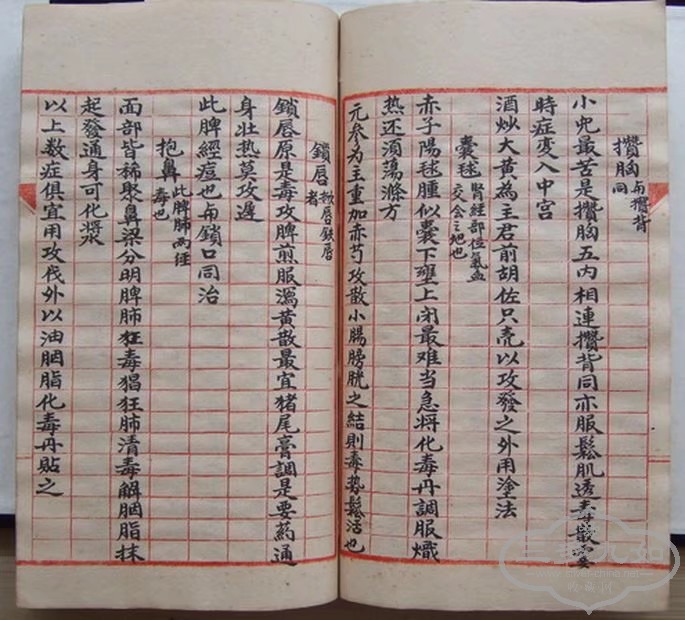 攢胸 与攢背同
小兒最苦是攢胸五内相連攢背同亦服鬆肌透毒散要
時症变入中宫
酒炒大黄為主君前胡佐只壳以攻發之外用塗法
囊毬 腎經部位氣血交会之地也
赤子陽毬腫似囊下壅上闭最难当急将化毒丹調服熾
热还須蕩滌方
元参为主重加赤芍攻散小腸膀胱之结則毒势鬆活也
鎖唇 救唇鉄唇者
鎖唇原是毒攻脾煎服瀉黄散最宜猪尾膏調是要药通
身壮热莫攻邊
此脾經痘也与鎖口同治
抱鼻 此脾肺两经毒也
面部皆稀聚鼻梁分明脾肺狂毒猖狂肺清毒解胭脂抹
起發通身可化漿
以上数症俱宜用攻伐外以油胭脂化毒丹貼之